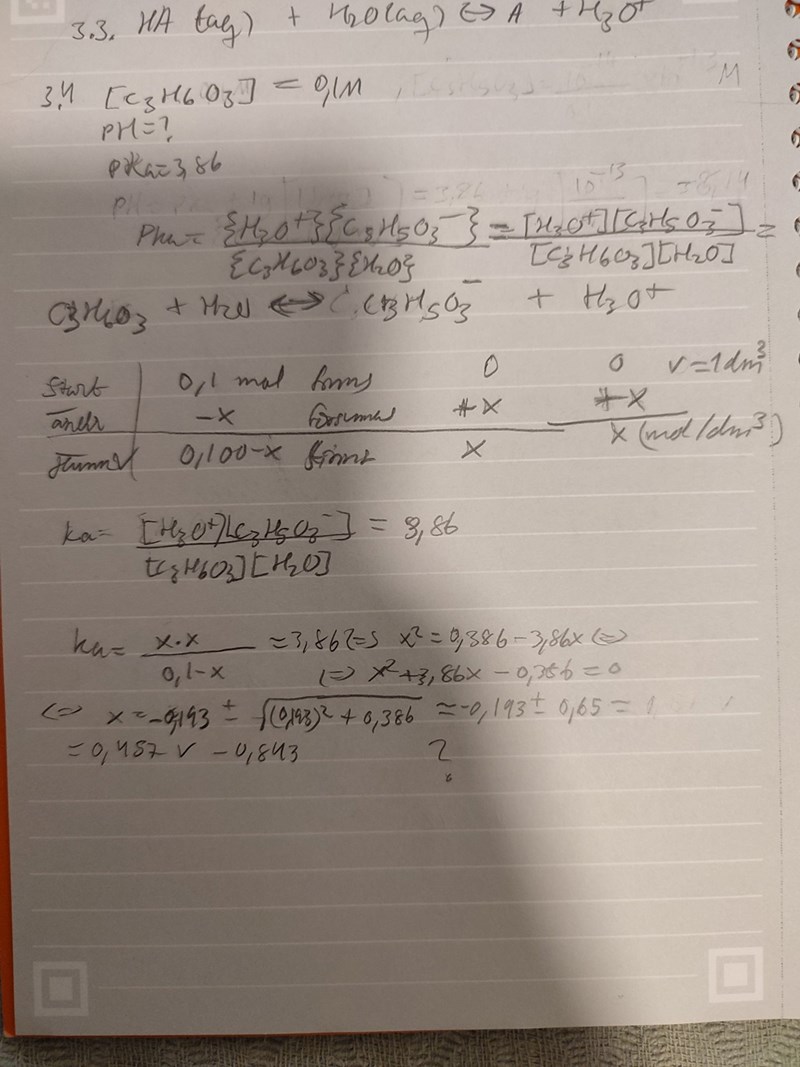 3.3. HA (aq) + H2O(aq) <=> A + H3O+
3.4 [C3H6O3] = 0,1M
PH=?
pKa=3,86
Pka= {H3O+}{C3H5O3-} / {C3H6O3}{H2O} = [H3O+][C3H5O3-] / [C3H6O3][H2O] =
C3H6O3 + H2O <=> C3H5O3- + H3O+
Start 0,1 mol 0 0 V=1dm3
-x +x +x
0,100-x x x (mol/dm3)
ka= [H3O+][C3H5O3-] / [C3H6O3][H2O] = 3,86
ka= x·x / 0,1-x = 3,86 <=> x2 = 0,386-3,86x <=>
<=> x2+3,86x - 0,386 = 0
<=> x = -0,193 ± √(0,193)2 + 0,386 = -0,193 ± 0,65 =
= 0,457 v - 0,843 ?